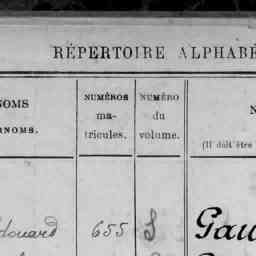 RÉPERTOIRE ALPHABÉ
NOMS
RNOMS.
NUMÉROS
ma-
tricules.
NUMÉRO
du
volume.
N
(Il doit être
douard
655
Gau